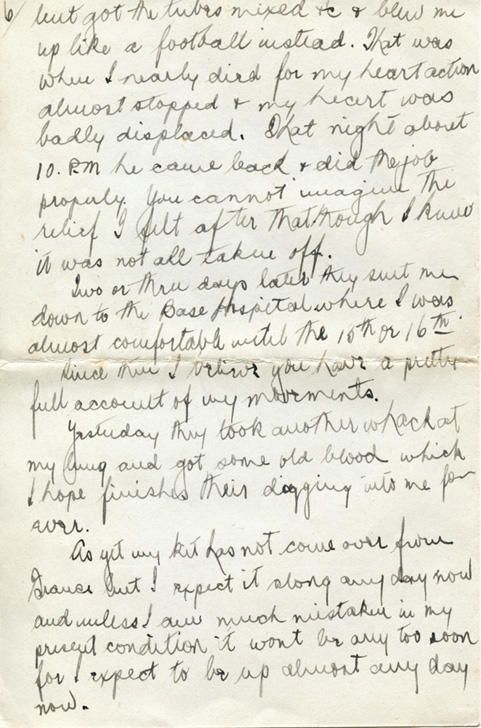 6/ but got the tubes mixed &c & blew me
up like a football instead. That was
when I nearly died for my heart action
almost stopped & my heart was
badly displaced. That night about
10. P.M he came back & did the job
properly. You cannot imagine the
relief I felt after that though I knew
it was not all taken off.
Two or three days later they sent me
down to the Base Hospital where I was
almost comfortable until the 15th or 16th.
Since then I believe you have a pretty
full account of my movements.
Yesterday they took another whack at
my lung and got some old blood which
I hope finishes their digging into me for
ever.
As yet my kit has not come over from
France but I expect it along any day now
and unless I am much mistaken in my
present condition it wont be any too soon
for I expect to be up almost any day
now.